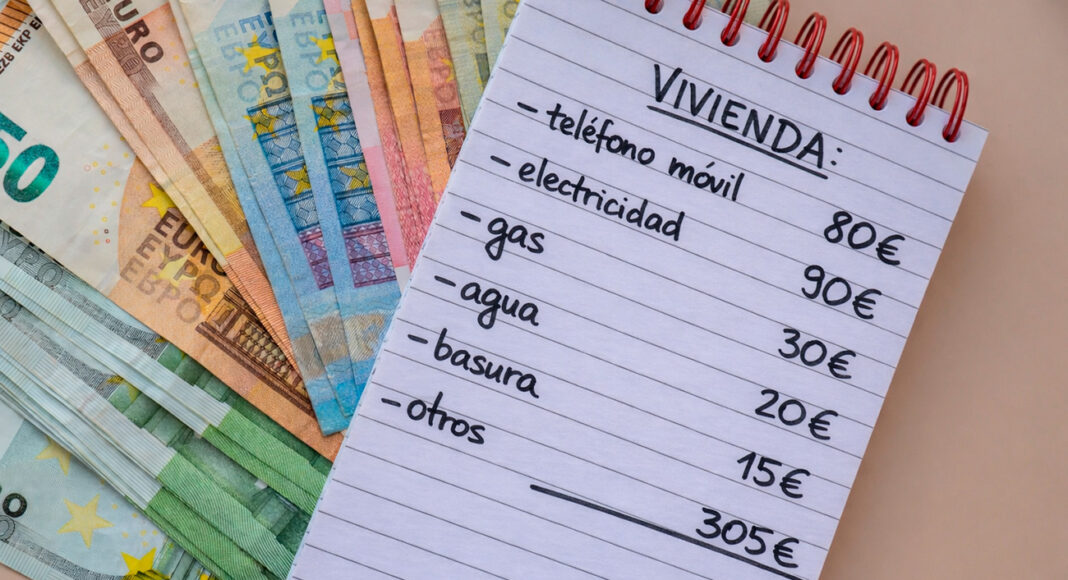 EZB EKP
EURO
50
EURO
ΕΥΡΩ
ЕВРО
VIVIENDA:
- teléfono móvil 80€
- electricidad 90€
- gas 30€
- agua 20€
- basura 15€
- otros 305€